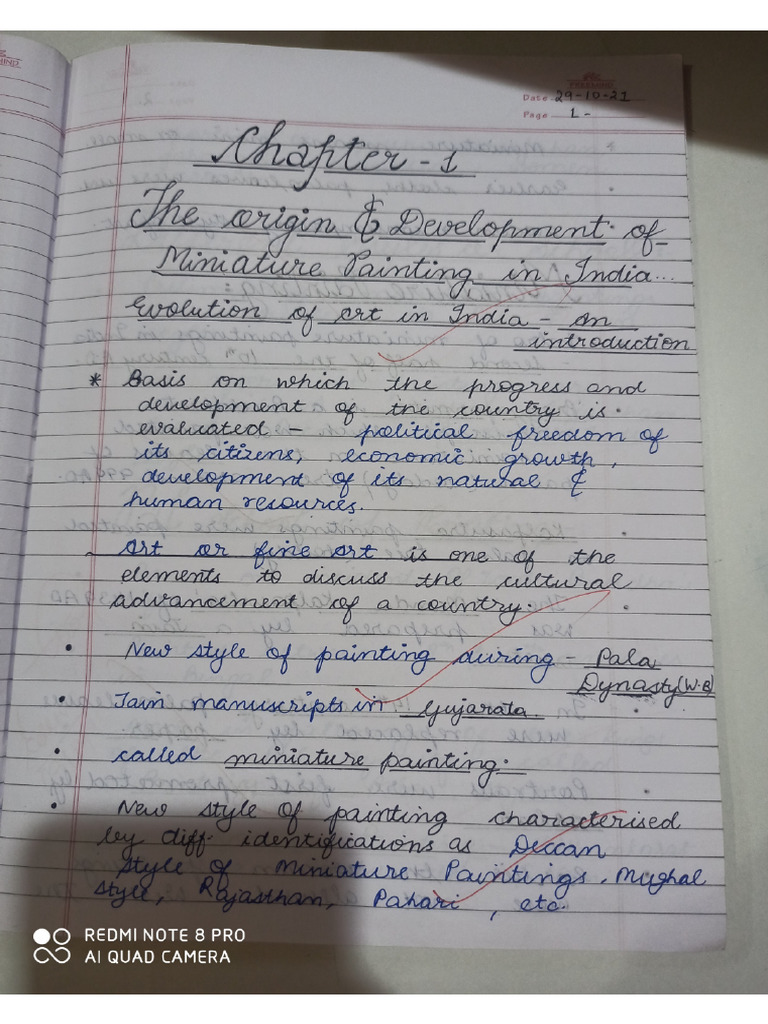 Date 29-10-21
Page 1-
Chapter - 1
The origin & Development of
Miniature Painting in India...
Evolution of art in India - an
introduction
* Basis on which the progress and
development of the country is.
evaluated - political freedom of
its citizens, economic growth,
development of its natural &
human resources.
Art or fine art is one of the
elements to discuss the cultural
advancement of a country.
• New style of painting during - Pala
Dynasty (W.B)
• Jain manuscripts in Gujarata
• called miniature painting.
• New style of painting characterised
by diff. identifications as Deccan
style of Miniature Paintings, Mughal
style, Rajasthan, Pahari, etc.
REDMI NOTE 8 PRO
AI QUAD CAMERA